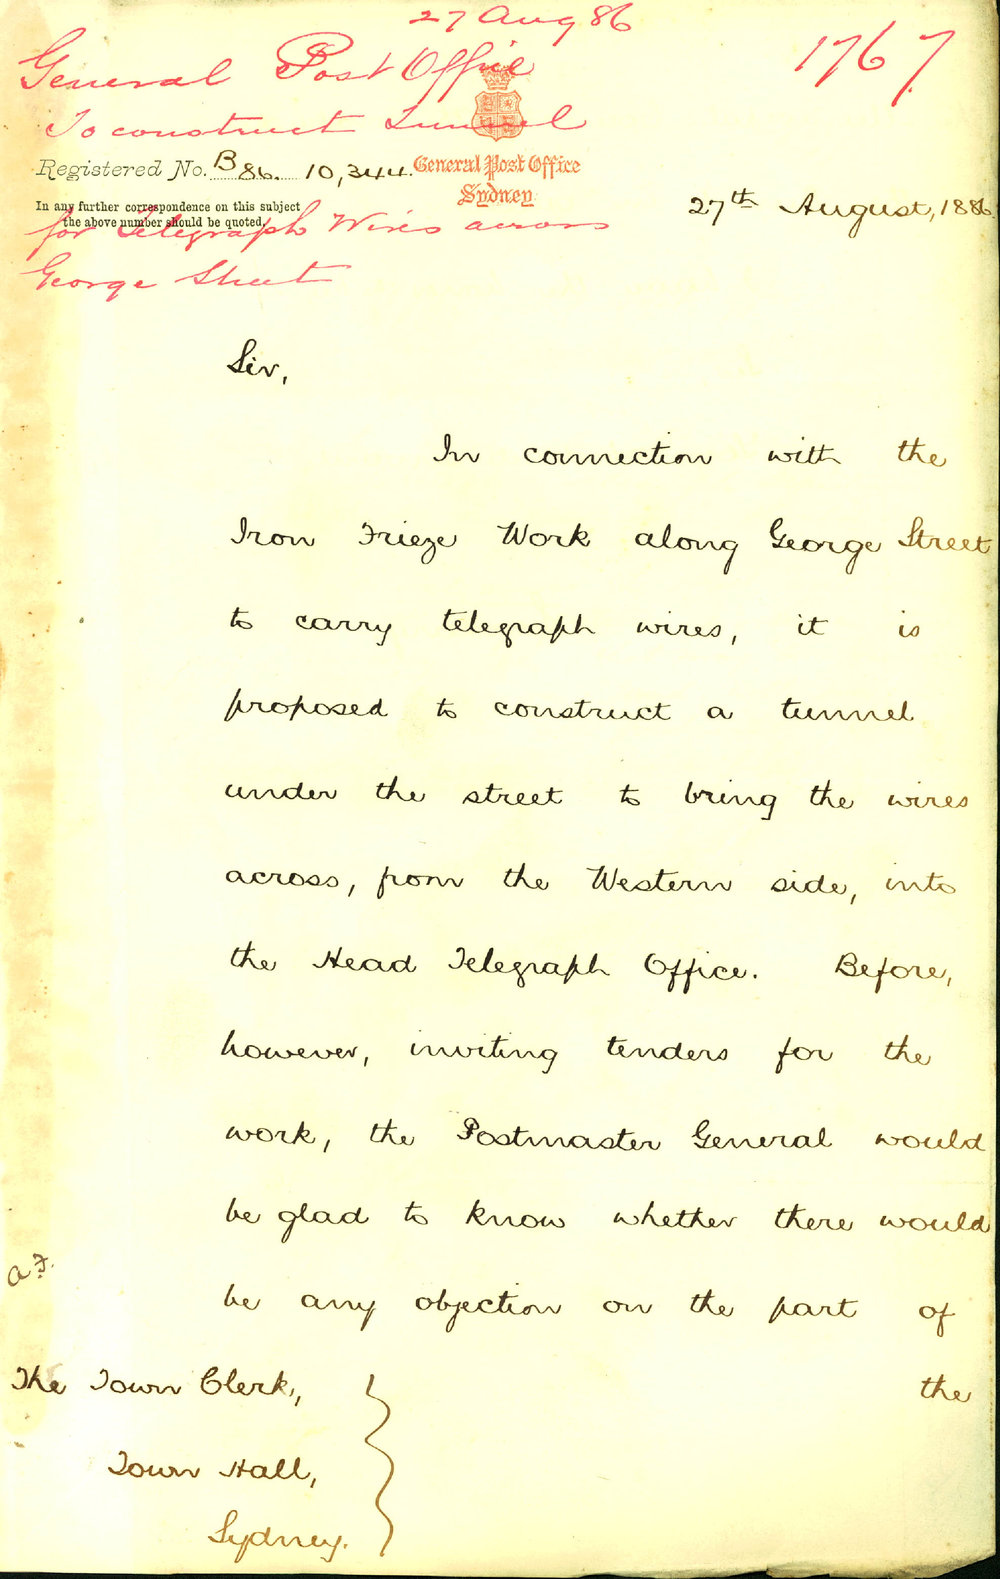 27 Aug 86
1767
General Post Office
To construct Tunnel
Registered No. B 86. 10,344.
General Post Office
Sydney.
In any further correspondence on this subject
the above number should be quoted.
for Telegraph Wires across
George Street
27th August, 1886
Sir,
In connection with the
Iron Frieze Work along George Street
to carry telegraph wires, it is
proposed to construct a tunnel
under the street to bring the wires
across, from the Western side, into
the Head Telegraph Office. Before,
however, inviting tenders for the
work, the Postmaster General would
be glad to know whether there would
be any objection on the part of
the
The Town Clerk,
Town Hall,
Sydney.